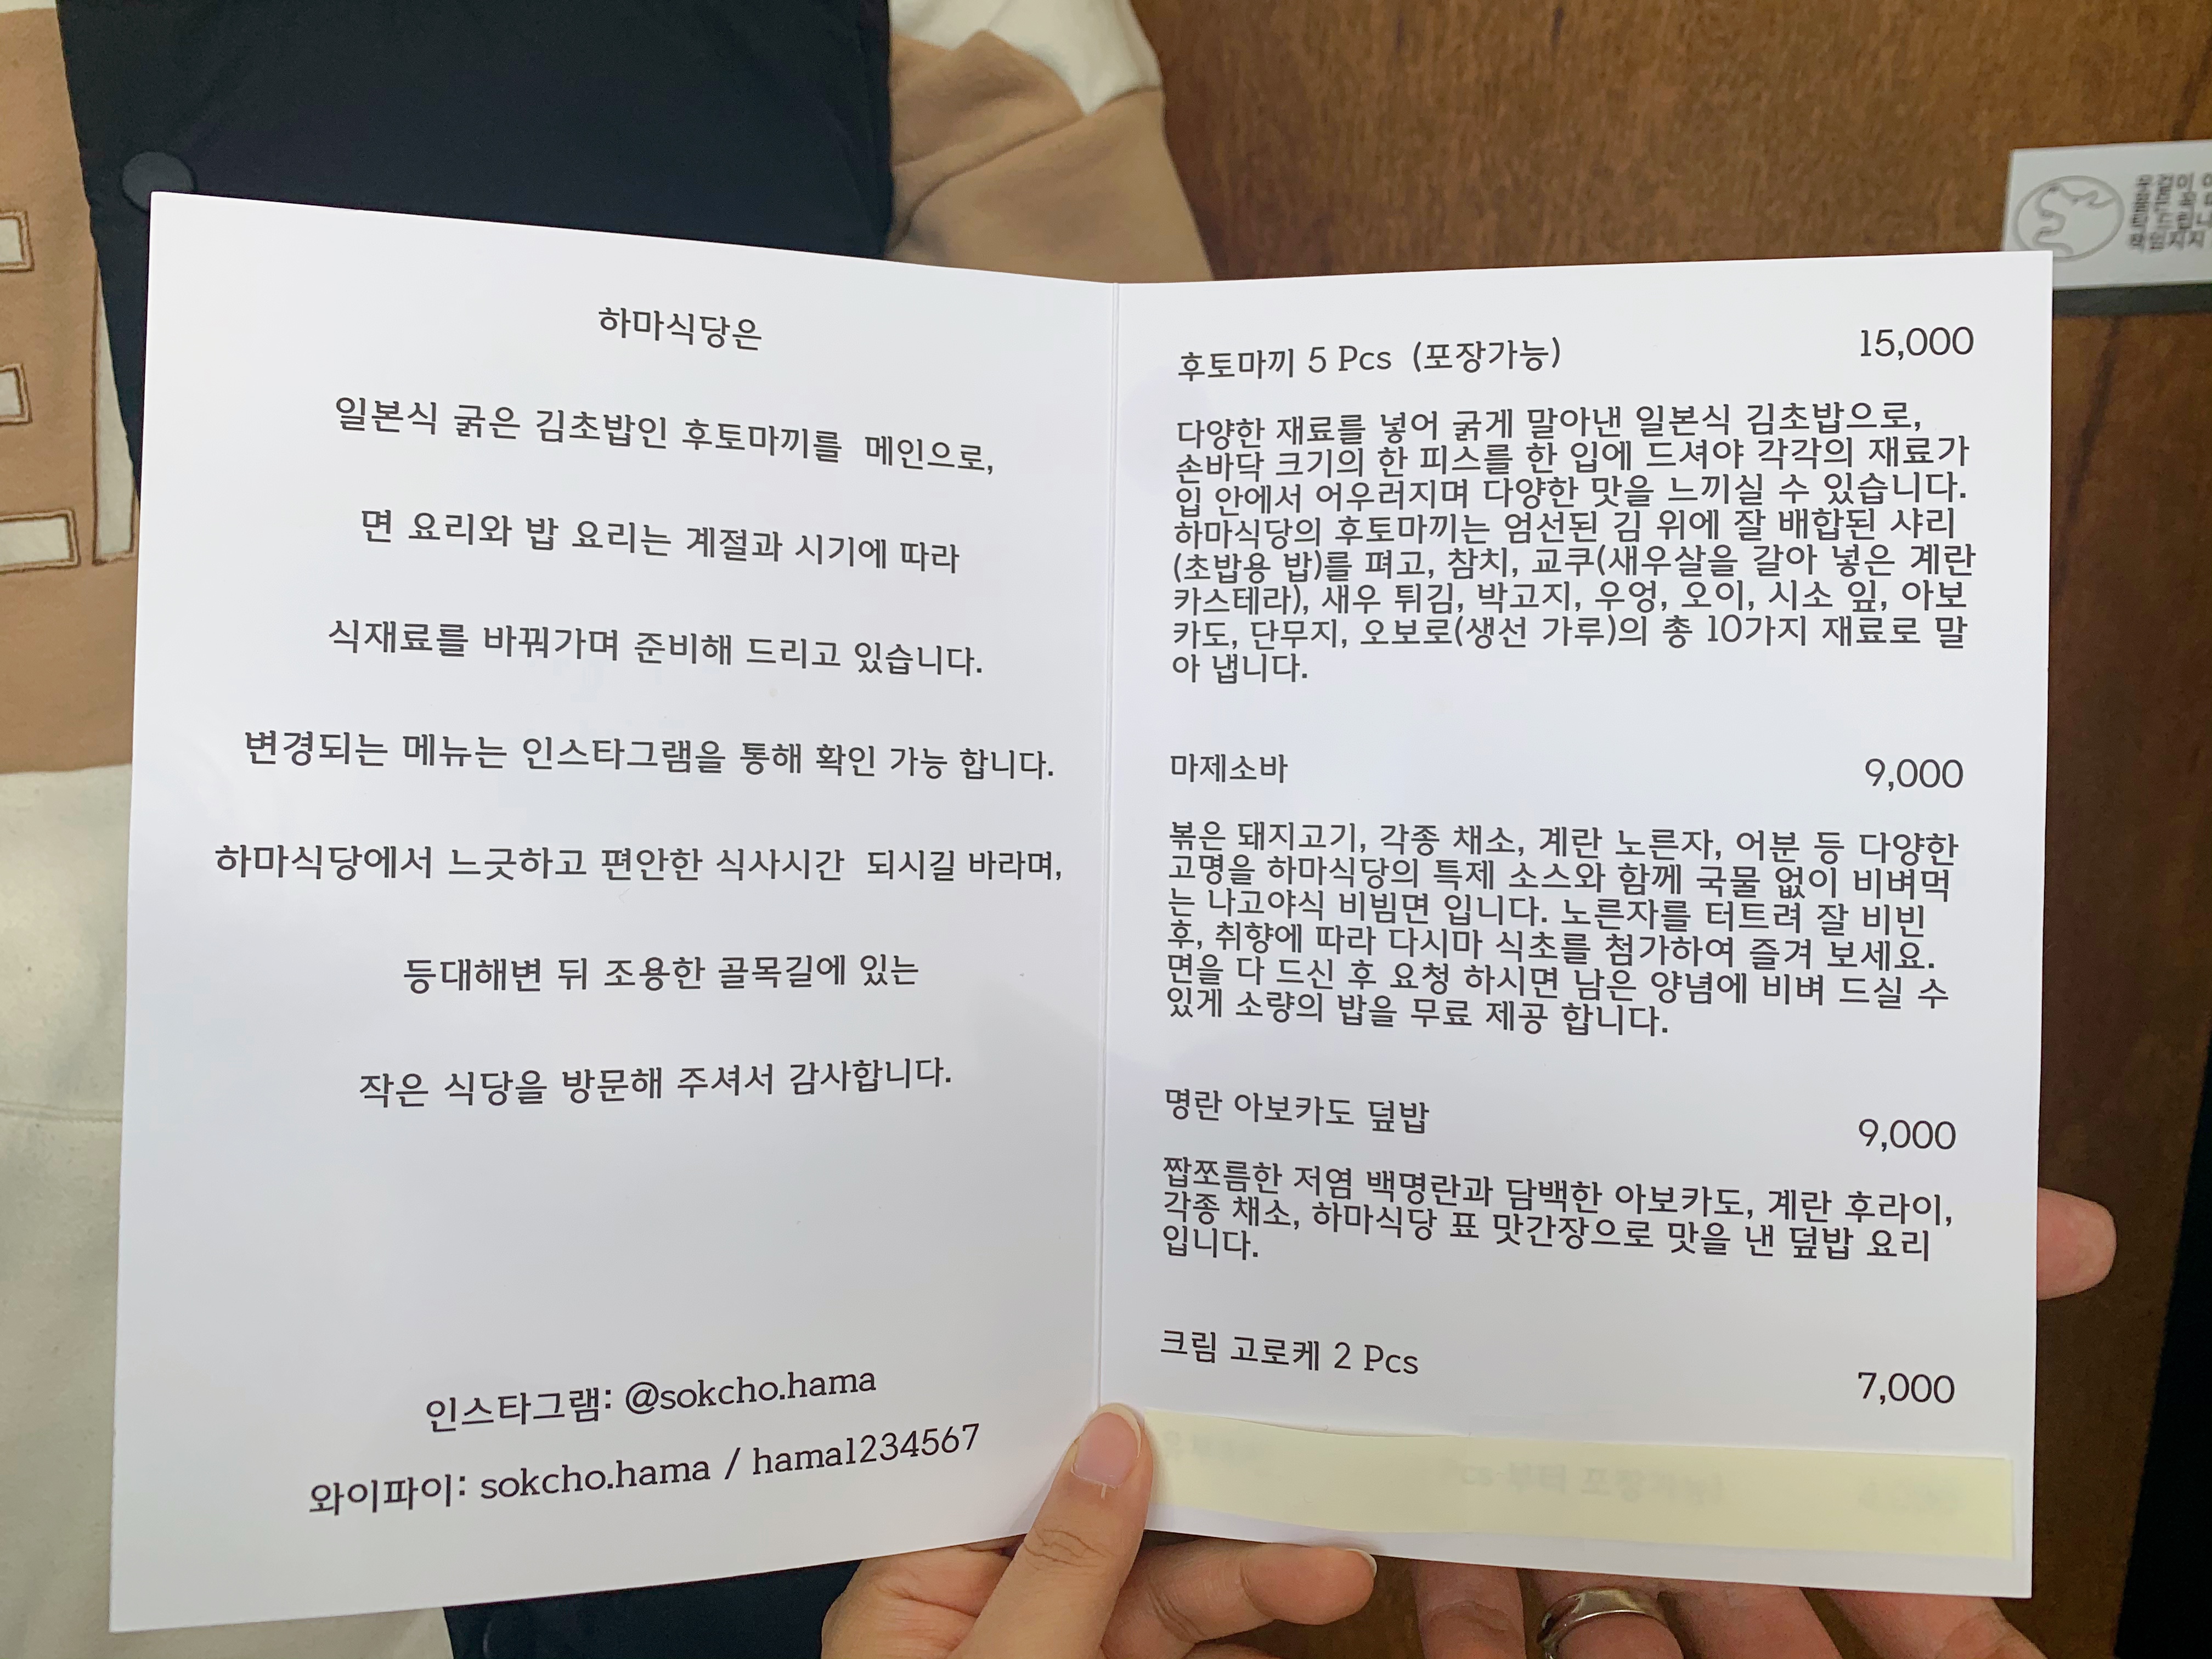 하마식당은
일본식 굵은 김초밥인 후토마끼를 메인으로,
면 요리와 밥 요리는 계절과 시기에 따라
식재료를 바꿔가며 준비해 드리고 있습니다.
변경되는 메뉴는 인스타그램을 통해 확인 가능 합니다.
하마식당에서 느긋하고 편안한 식사시간 되시길 바라며,
등대해변 뒤 조용한 골목길에 있는
작은 식당을 방문해 주셔서 감사합니다.
인스타그램: @sokcho.hama
와이파이: sokcho.hama / hama1234567
후토마끼 5 Pcs (포장가능) 15,000
다양한 재료를 넣어 굵게 말아낸 일본식 김초밥으로,
손바닥 크기의 한 피스를 한 입에 드셔야 각각의 재료가
입 안에서 어우러지며 다양한 맛을 느끼실 수 있습니다.
하마식당의 후토마끼는 엄선된 김 위에 잘 배합된 샤리
(초밥용 밥)를 펴고, 참치, 교쿠(새우살을 갈아 넣은 계란
카스테라), 새우 튀김, 박고지, 우엉, 오이, 시소 잎, 아보
카도, 단무지, 오보로(생선 가루)의 총 10가지 재료로 말
아 냅니다.
마제소바 9,000
볶은 돼지고기, 각종 채소, 계란 노른자, 어분 등 다양한
고명을 하마식당의 특제 소스와 함께 국물 없이 비벼먹
는 나고야식 비빔면 입니다. 노른자를 터트려 잘 비빈
후, 취향에 따라 다시마 식초를 첨가하여 즐겨 보세요.
면을 다 드신 후 요청 하시면 남은 양념에 비벼 드실 수
있게 소량의 밥을 무료 제공 합니다.
명란 아보카도 덮밥 9,000
짭쪼름한 저염 백명란과 담백한 아보카도, 계란 후라이,
각종 채소, 하마식당 표 맛간장으로 맛을 낸 덮밥 요리
입니다.
크림 고로케 2 Pcs 7,000
Pcs 부터 포장가능)